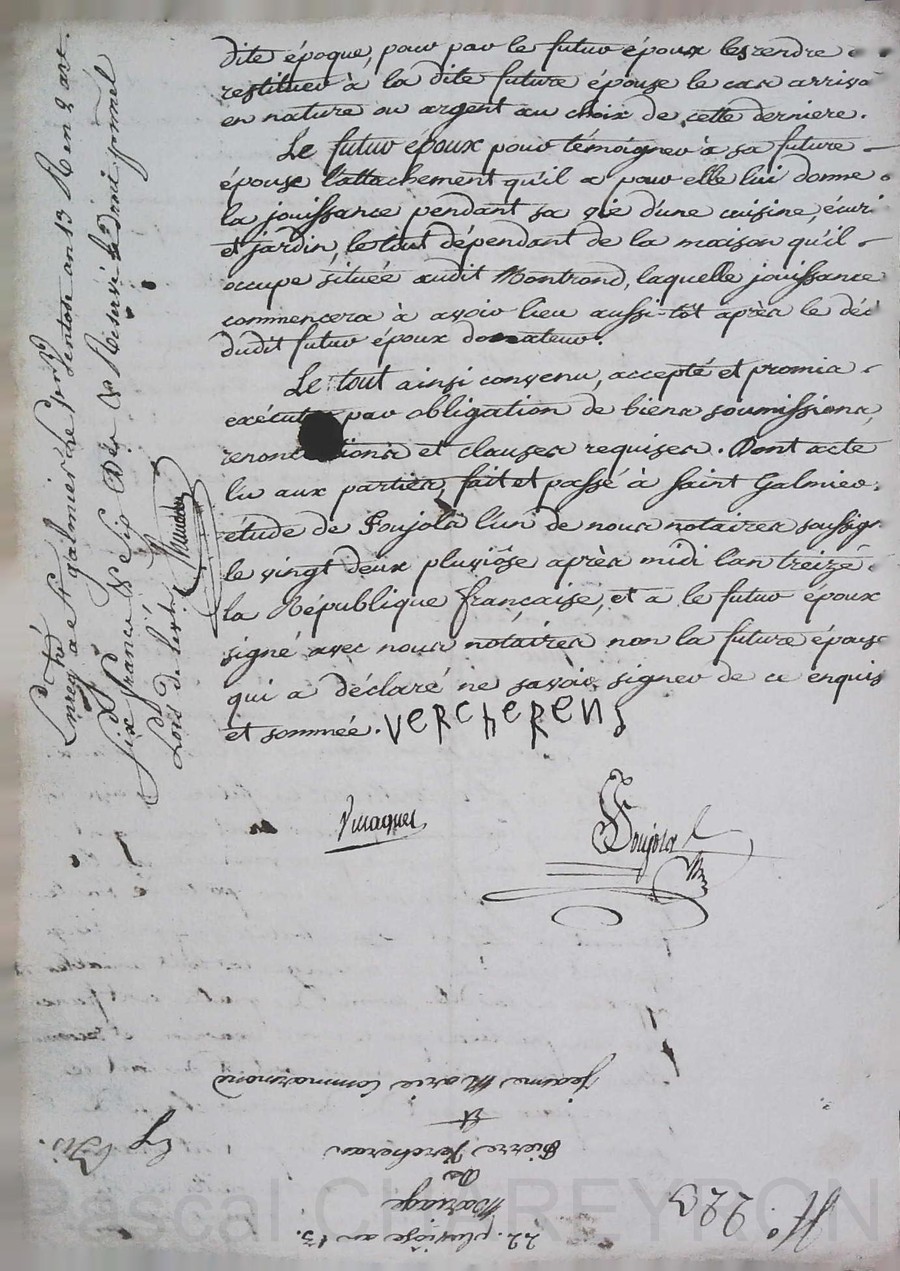 dite époque, pour par le futur époux les rendre
restituer à la dite future épouse le cas arriva
en nature ou argent au choix de cette derniere.
Le futur époux pour témoigner à sa future
épouse l'attachement qu'il a pour elle lui donne
la jouissance pendant sa vie d'une cuisine, écuri
et jardin, le tout dépendant de la maison qu'il
occupe située audit Montrond, laquelle jouissance
commencera à avoir lieu aussi-tôt après le déc
dudit futur époux donateur.
Le tout ainsi convenu, accepté et promis
exécuter par obligation de biens soumissions,
renonciations et clauses requises. Dont acte
lu aux parties, fait et passé à Saint Galmier
étude de Soujola l'un de nous notaires soussig
le vingt deux pluviôse après midi l'an treize
la République française, et a le futur époux
signé avec nous notaires non la future épouse
qui a déclaré ne savoir signer de ce enquis
et sommée. vercherens
Soujola
Enreg. à St. galmier le ventose an 13 R en 2 art.
six francs Réservé le Droit
N.° 223
22. pluviôse an 13.
Mariage
De
Pierre Vercheran
Et
Jeanne Marie Commarmond
Pascal CHAREYRON